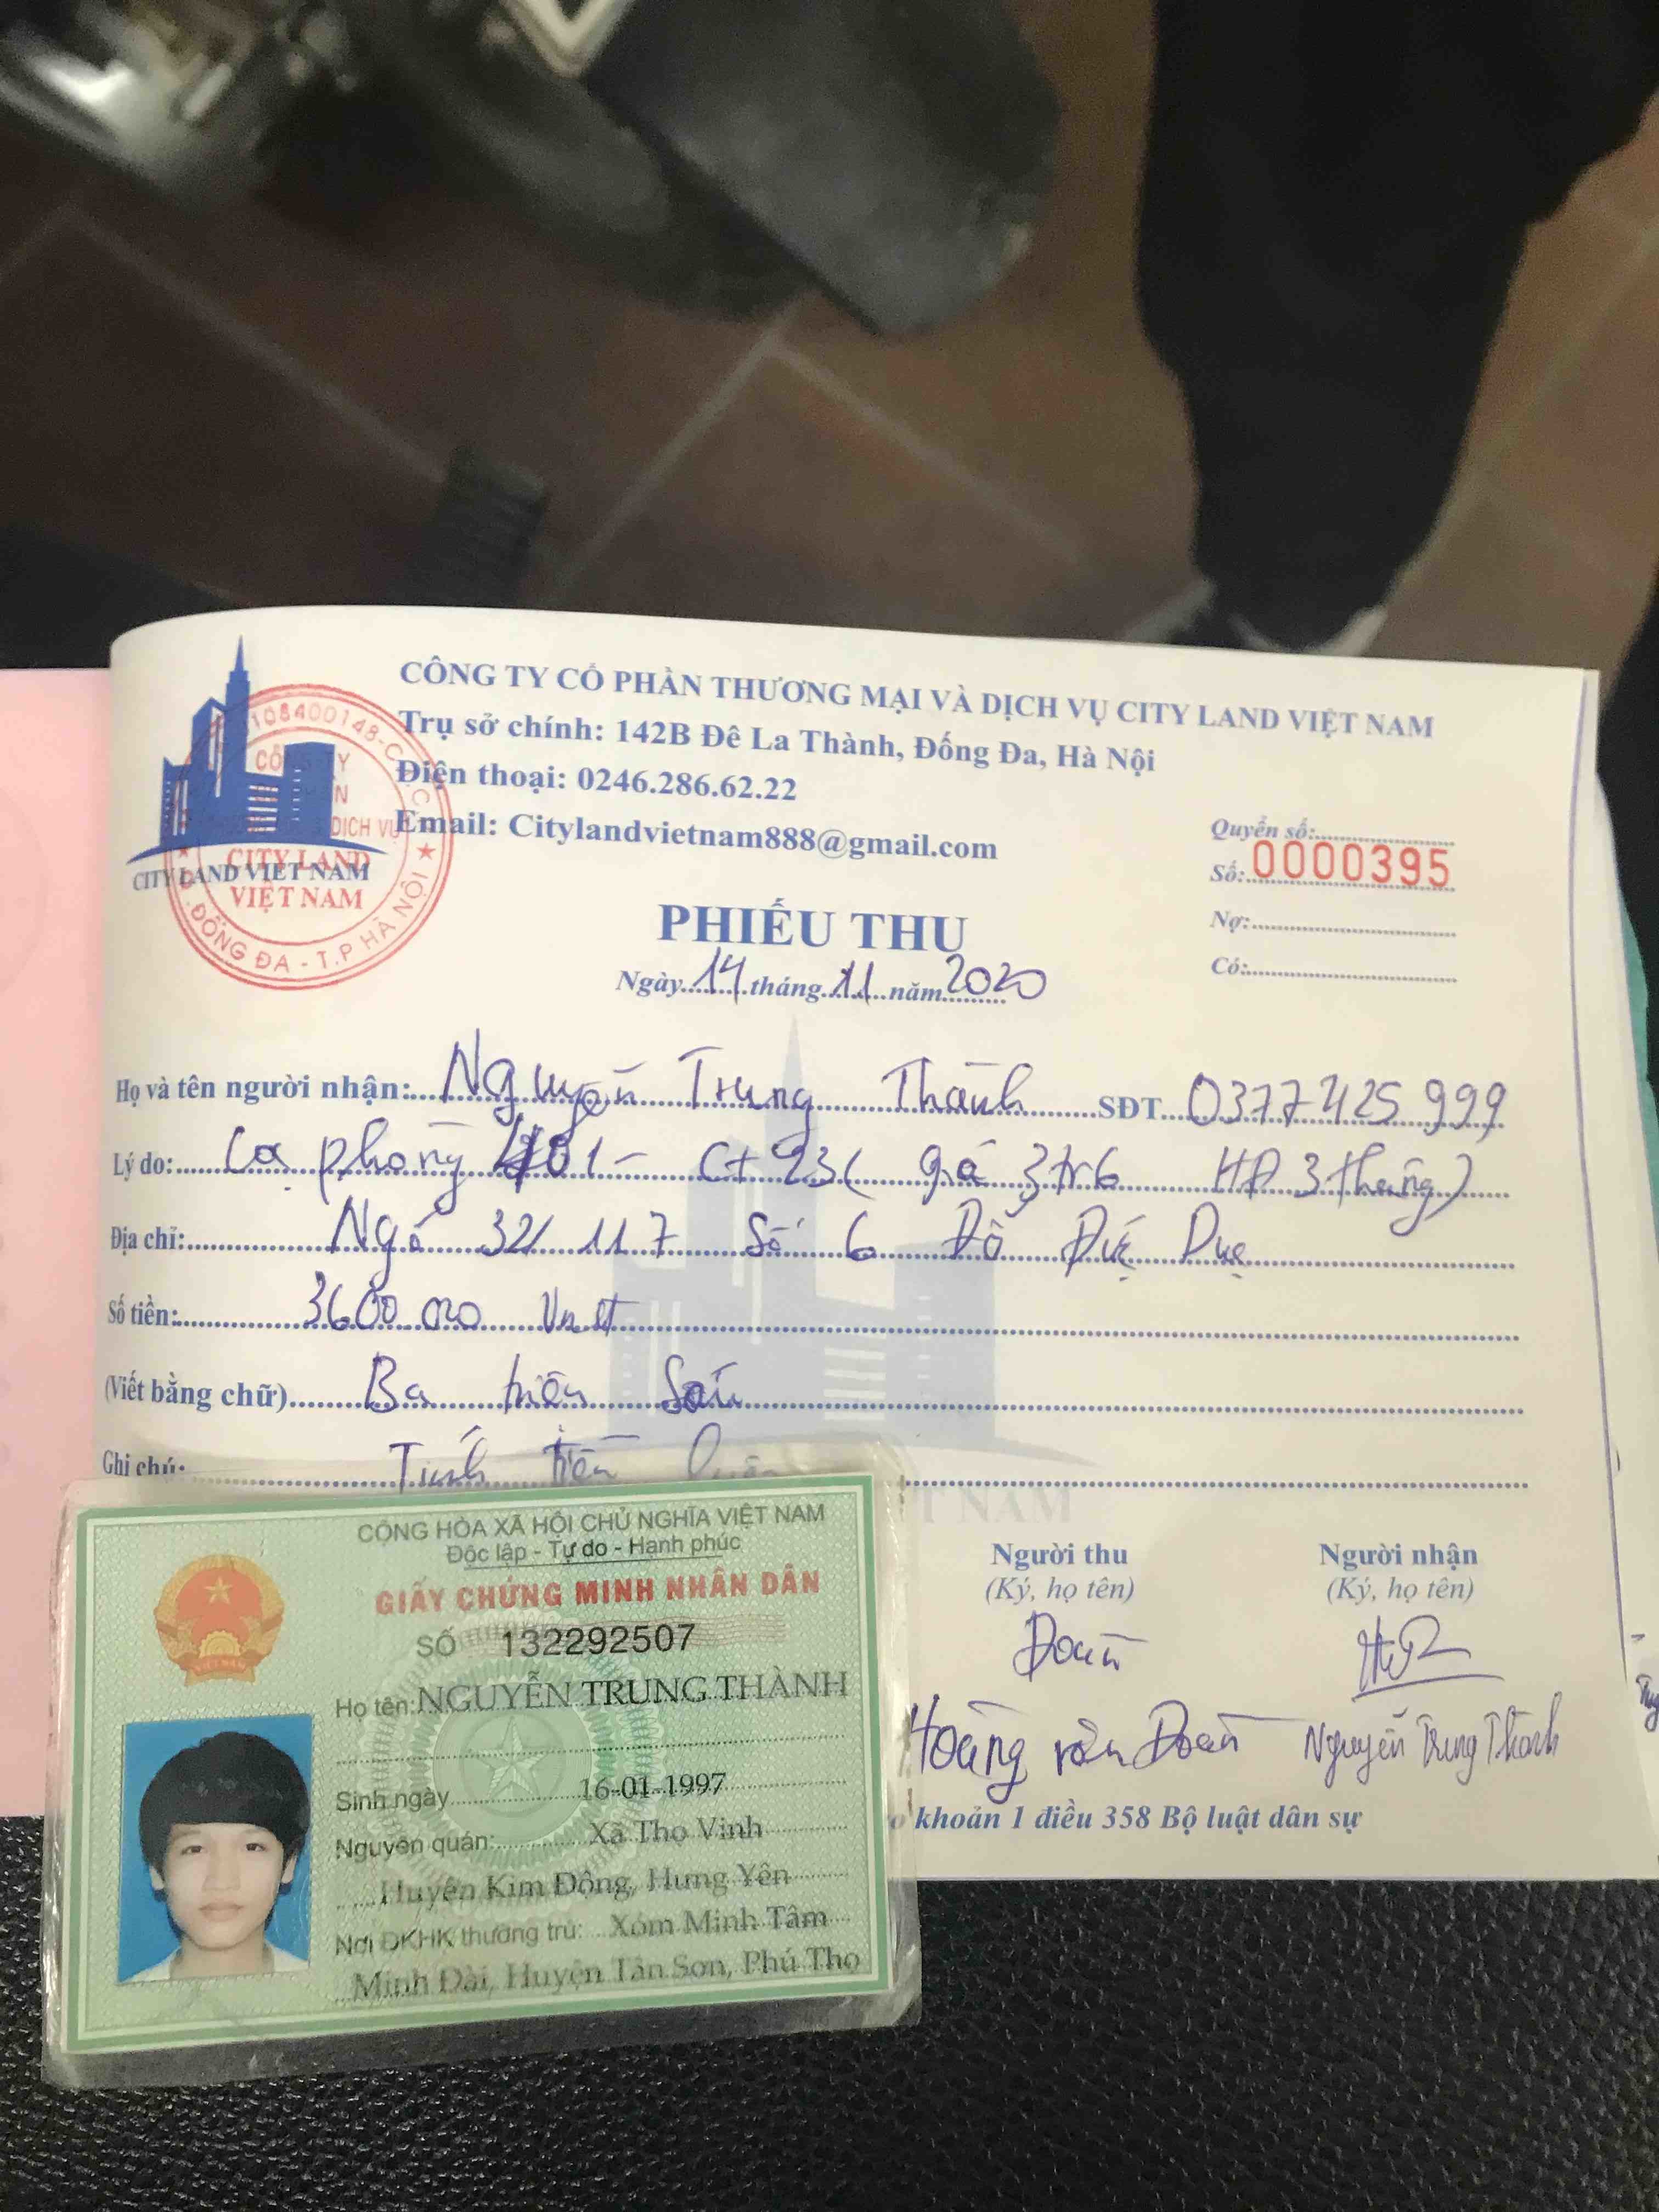 CÔNG TY CỔ PHẦN THƯƠNG MẠI VÀ DỊCH VỤ CITY LAND VIỆT NAM
Trụ sở chính: 142B Đê La Thành, Đống Đa, Hà Nội
Điện thoại: 0246.286.62.22
Email: Citylandvietnam888@gmail.com
CITY LAND VIET NAM
CITY LAND
VIỆT NAM
ĐỐNG ĐA - T.P HÀ NỘI
Quyển số:
Số: 0000395
Nợ:
Có:
PHIẾU THU
Ngày 14 tháng 11 năm 2020
Họ và tên người nhận: Nguyễn Trung Thành SĐT 0377425999
Lý do: Cọ phòng 401 - Ct 23 ( giá 3tr6 HĐ 3 tháng )
Địa chỉ: Ngõ 32/117 Số 6 Đỗ Đức Dục
Số tiền: 3600 000 Vnđ
(Viết bằng chữ) Ba triệu Sáu
Ghi chú: Tính tiền
Người thu
(Ký, họ tên)
Đoàn
Hoàng văn Đoàn
Người nhận
(Ký, họ tên)
Nguyễn Trung Thành
khoản 1 điều 358 Bộ luật dân sự
CỘNG HÒA XÃ HỘI CHỦ NGHĨA VIỆT NAM
Độc lập - Tự do - Hạnh phúc
GIẤY CHỨNG MINH NHÂN DÂN
SỐ 132292507
Họ tên: NGUYỄN TRUNG THÀNH
Sinh ngày 16-01-1997
Nguyên quán: Xã Thọ Vinh
Huyện Kim Động, Hưng Yên
Nơi ĐKHK thường trú: Xóm Minh Tâm
Minh Đài, Huyện Tân Sơn, Phú Thọ